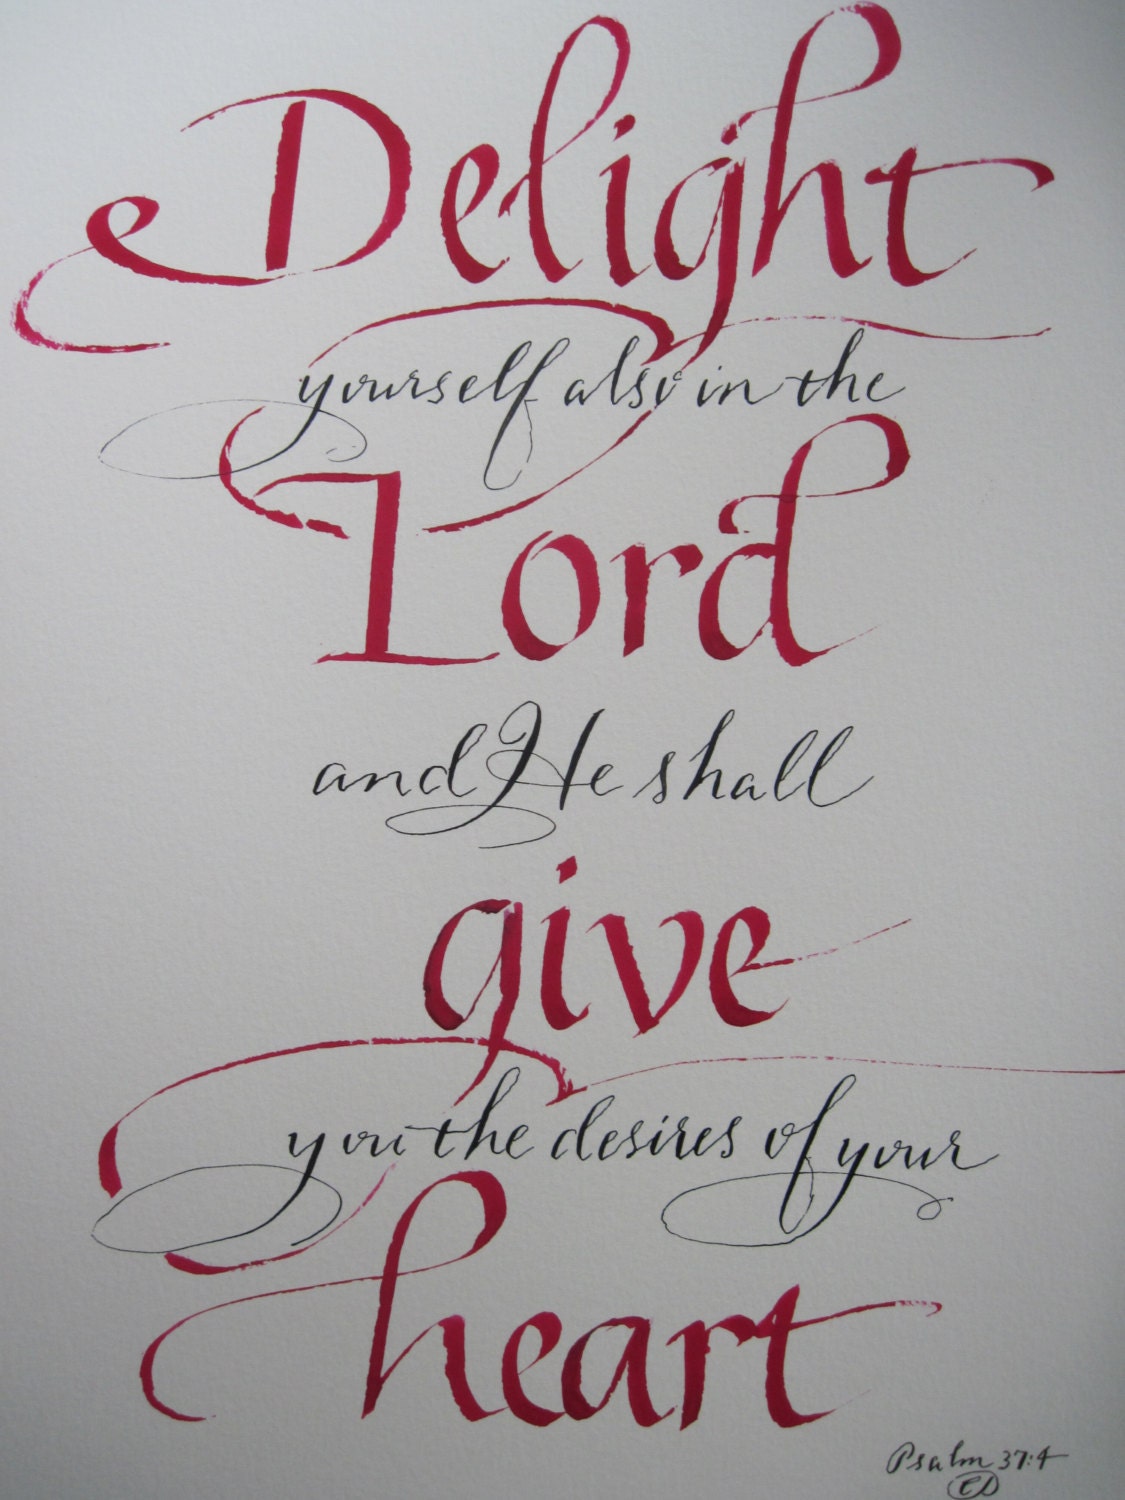 Delight
yourself also in the
Lord
and He shall
give
you the desires of your
heart
Psalm 37:4